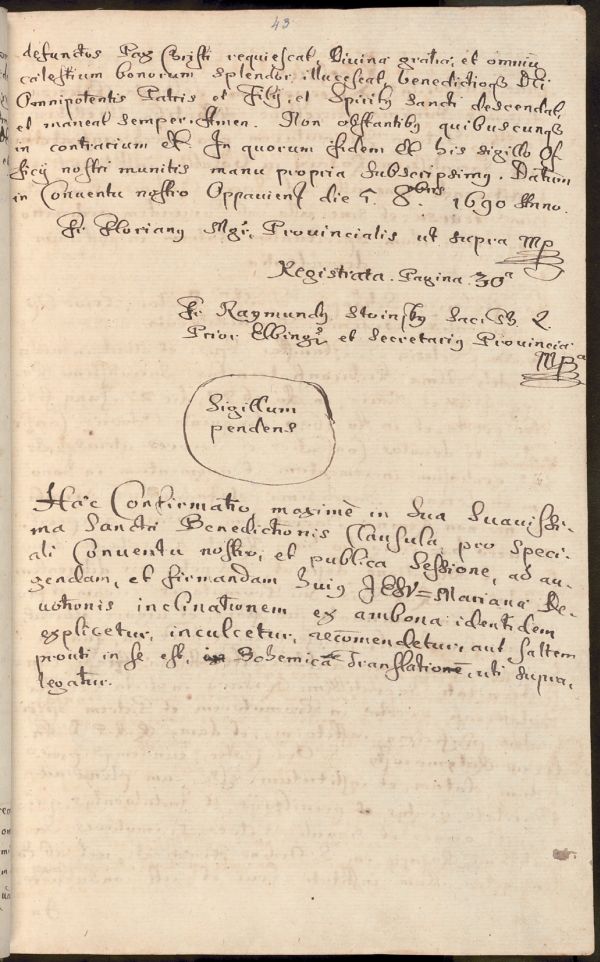 43
defunctos Pax Christi requiescat, Divina gratia, et omniũ
cælestium bonorum splendor illucescat, benedictioq; Dei
Omnipotentis Patris et Filij, et Spiritus Sancti descendat,
et maneat semper. Amen. Non obstantibus quibuscunq;
in contrarium &c. In quorum fidem &c his sigillo Of-
ficij nostri munitis manu propria subscripsimus. Datum
in Conventu nostro Oppaviens die 5. 8bris 1690 Anno.
Fr. Florianus Mgr, Provincialis ut supra Mp
Registrata. Pagina. 30a
Fr Raymundus Sac.
Prior Elbing et Secretarius Provinciæ
Mpa
Sigillum
pendens
Hæc Confirmatio, maximè in sua suavissi-
ma Sanctæ Benedictionis Clausula, pro speci-
ali Conventu nostro, et publica Sessione, ad au-
gendam, et firmandam huius JESV=Mariana De-
votionis inclinationem ex ambona identidem
explicetur, inculcetur, recomendetur, aut saltem
prouti in se est, Bohemica Translatione, uti supra,
legatur.